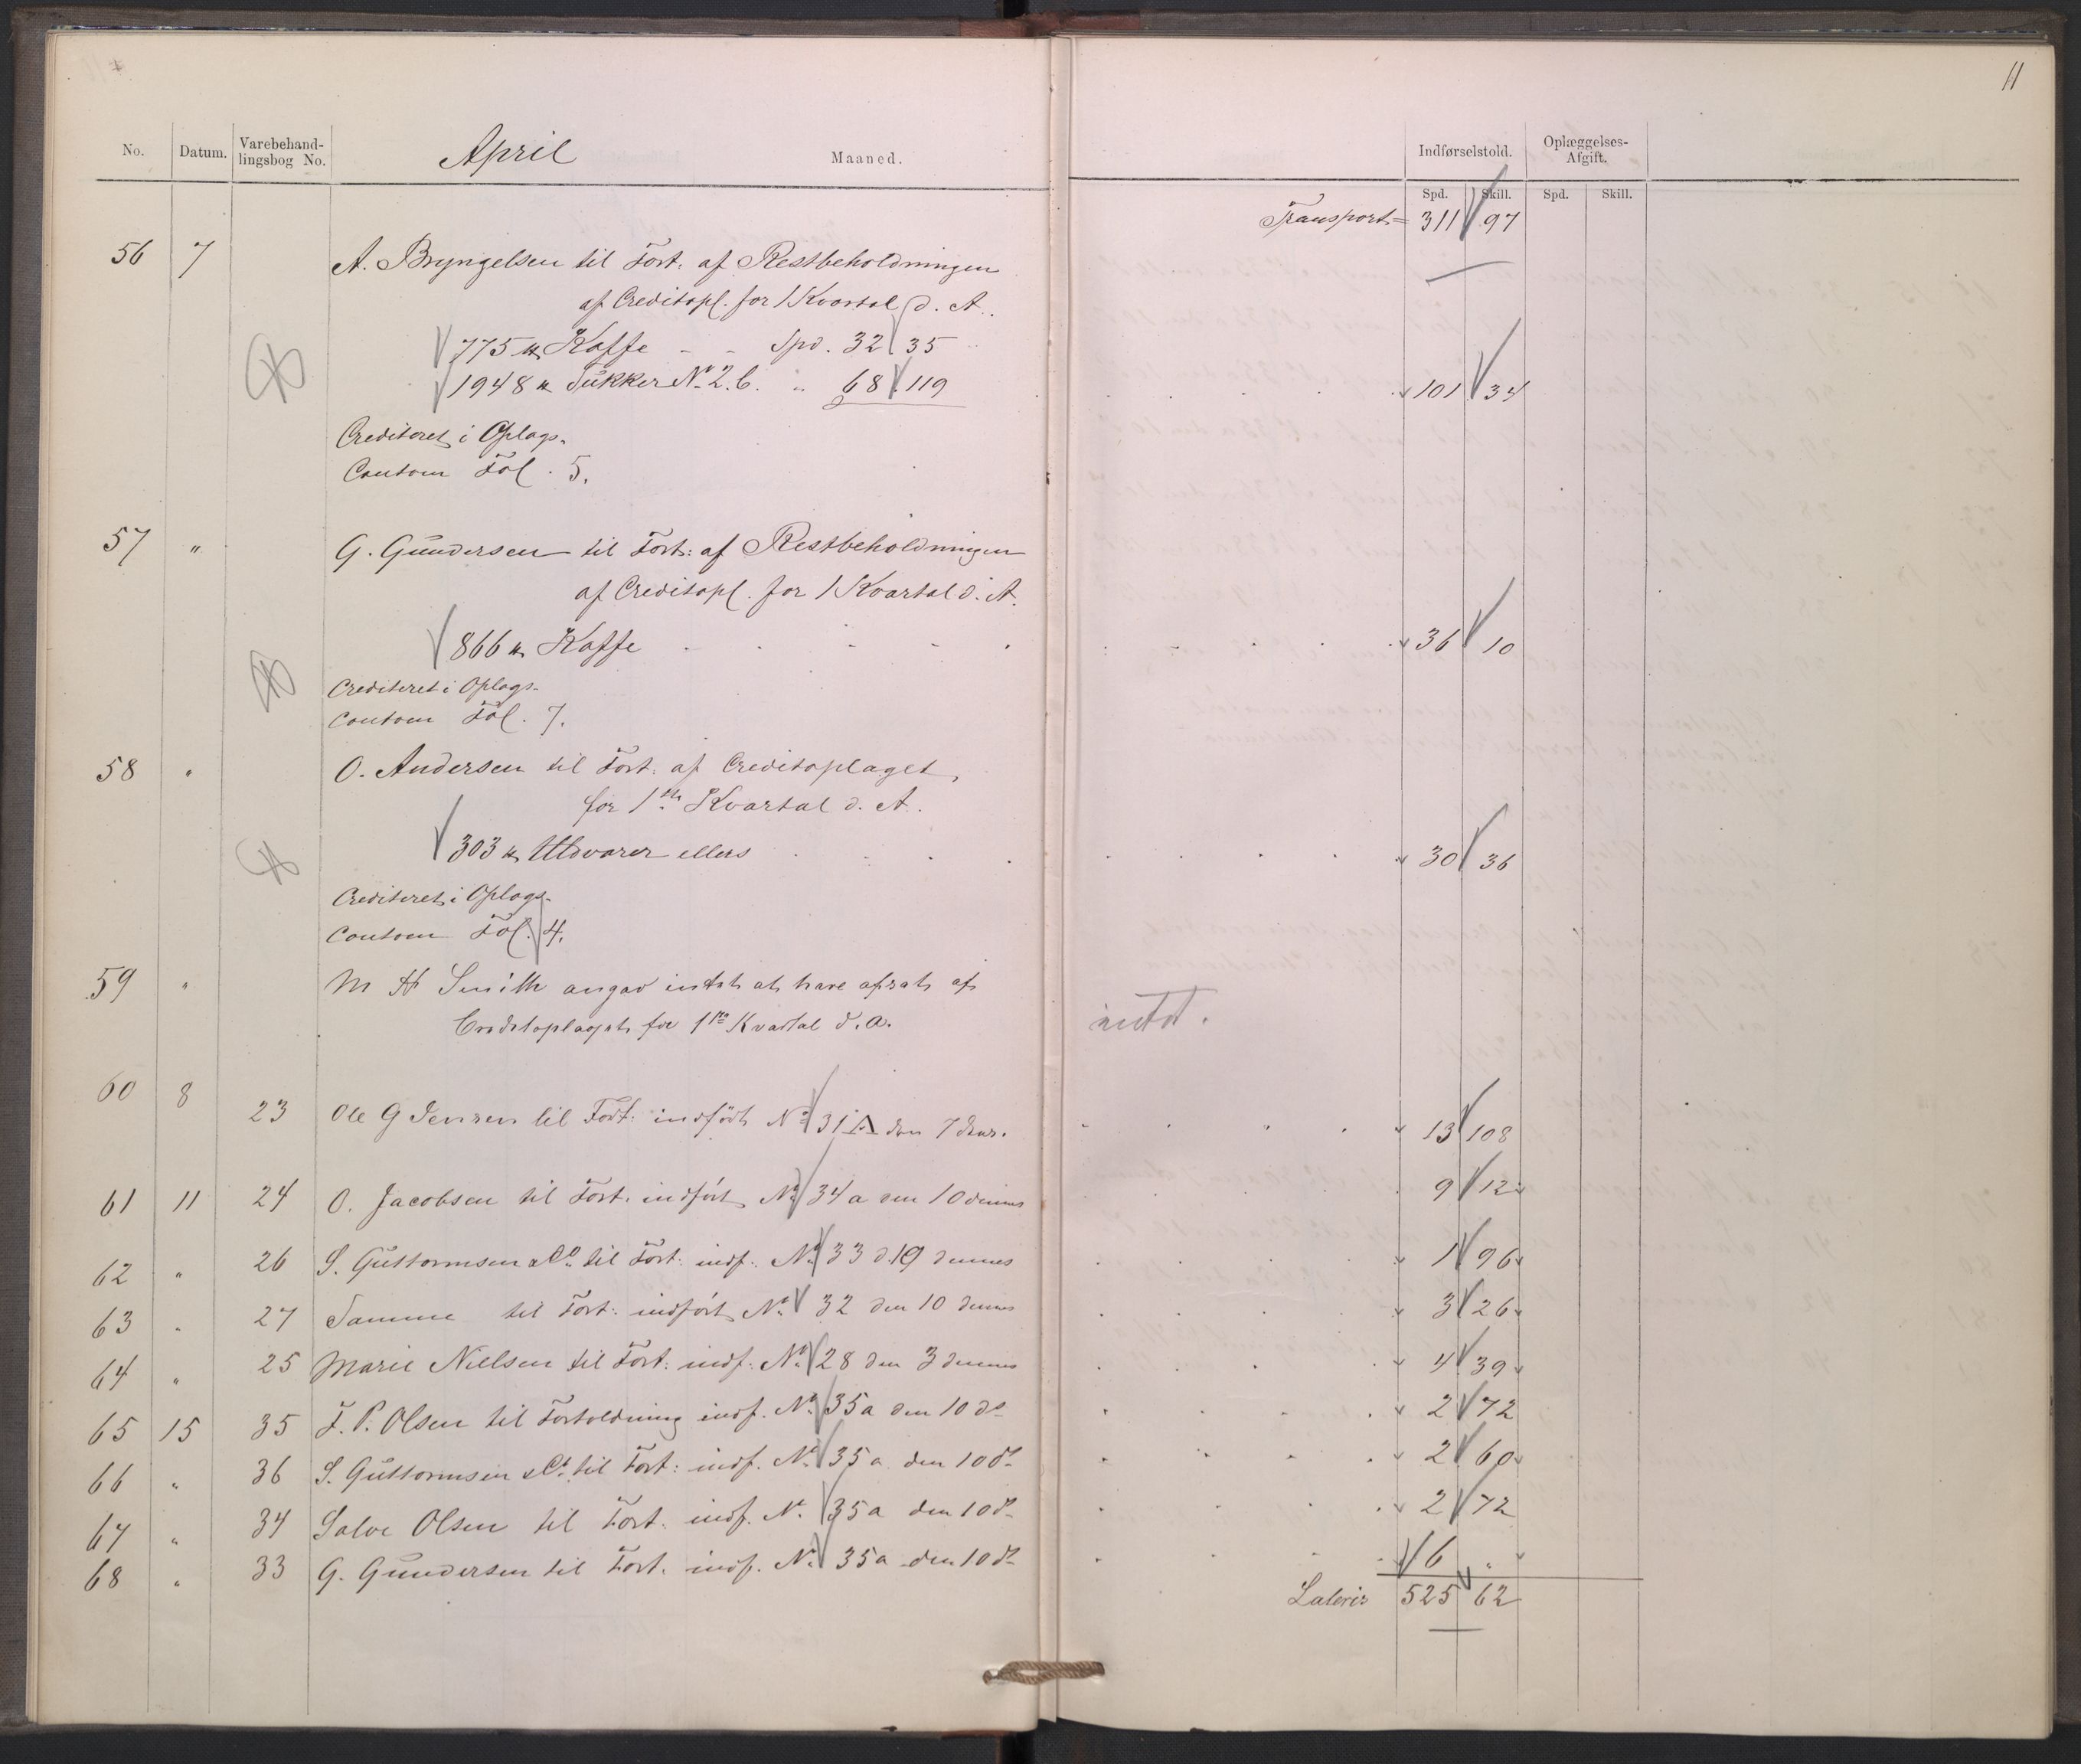 11
No. Datum. Varebehand-lingsbog No. April Maaned. Indførselstold. Oplæggelses-Afgift.
Spd. Skill. Spd. Skill.
Transport = 311 97
56 7 A. Bryngelsen til Fort. af Restbeholdningen
af Creditopl. for 1 Kvartal d. A.
775 ℔ Kaffe - - Spd. 32 35
1948 ℔ Sukker No. 2. b. " 68 119 101 34
Crediteret i Oplags-
Contoen Fol. 5.
57 " G. Gundersen til Fort: af Restbeholdningen
af Creditopl. for 1 Kvartal d. A.
866 ℔ Kaffe 36 10
Crediteret i Oplags-
Contoen Fol. 7.
58 " O. Andersen til Fort. af Creditoplaget
for 1ste Kvartal d. A.
303 ℔ Uldvarer ellers 30 36
Crediteret i Oplags-
Contoen Fol. 4.
59 " M H Smith angav intet at have afsat af
Creditoplaget for 1ste Kvartal d. a. intet.
60 8 23 Ole G Jensen til Fort. indført No. 31 A den 7 dennes. 13 108
61 11 24 O. Jacobsen til Fort. indført No. 34 a den 10 dennes 9 12
62 " 26 S. Guttormsen & Co. til Fort. indf. No. 33 d. 10 dennes 1 96
63 " 27 Samme til Fort. indført No. 32 den 10 dennes 3 26
64 " 25 Marie Nielsen til Fort. indf. No. 28 den 3 dennes 4 39
65 15 35 F. P. Olsen til Fortoldning indf. No. 35 a den 10 do 2 72
66 " 36 S. Guttormsen & Co. til Fort: indf. No. 35 a den 10 do 2 60
67 " 34 Salve Olsen til Fort. indf. No. 35 a den 10 do 2 72
68 " 33 G. Gundersen til Fort. indf. No. 35 a den 10 do 6 "
Lateris 525 62